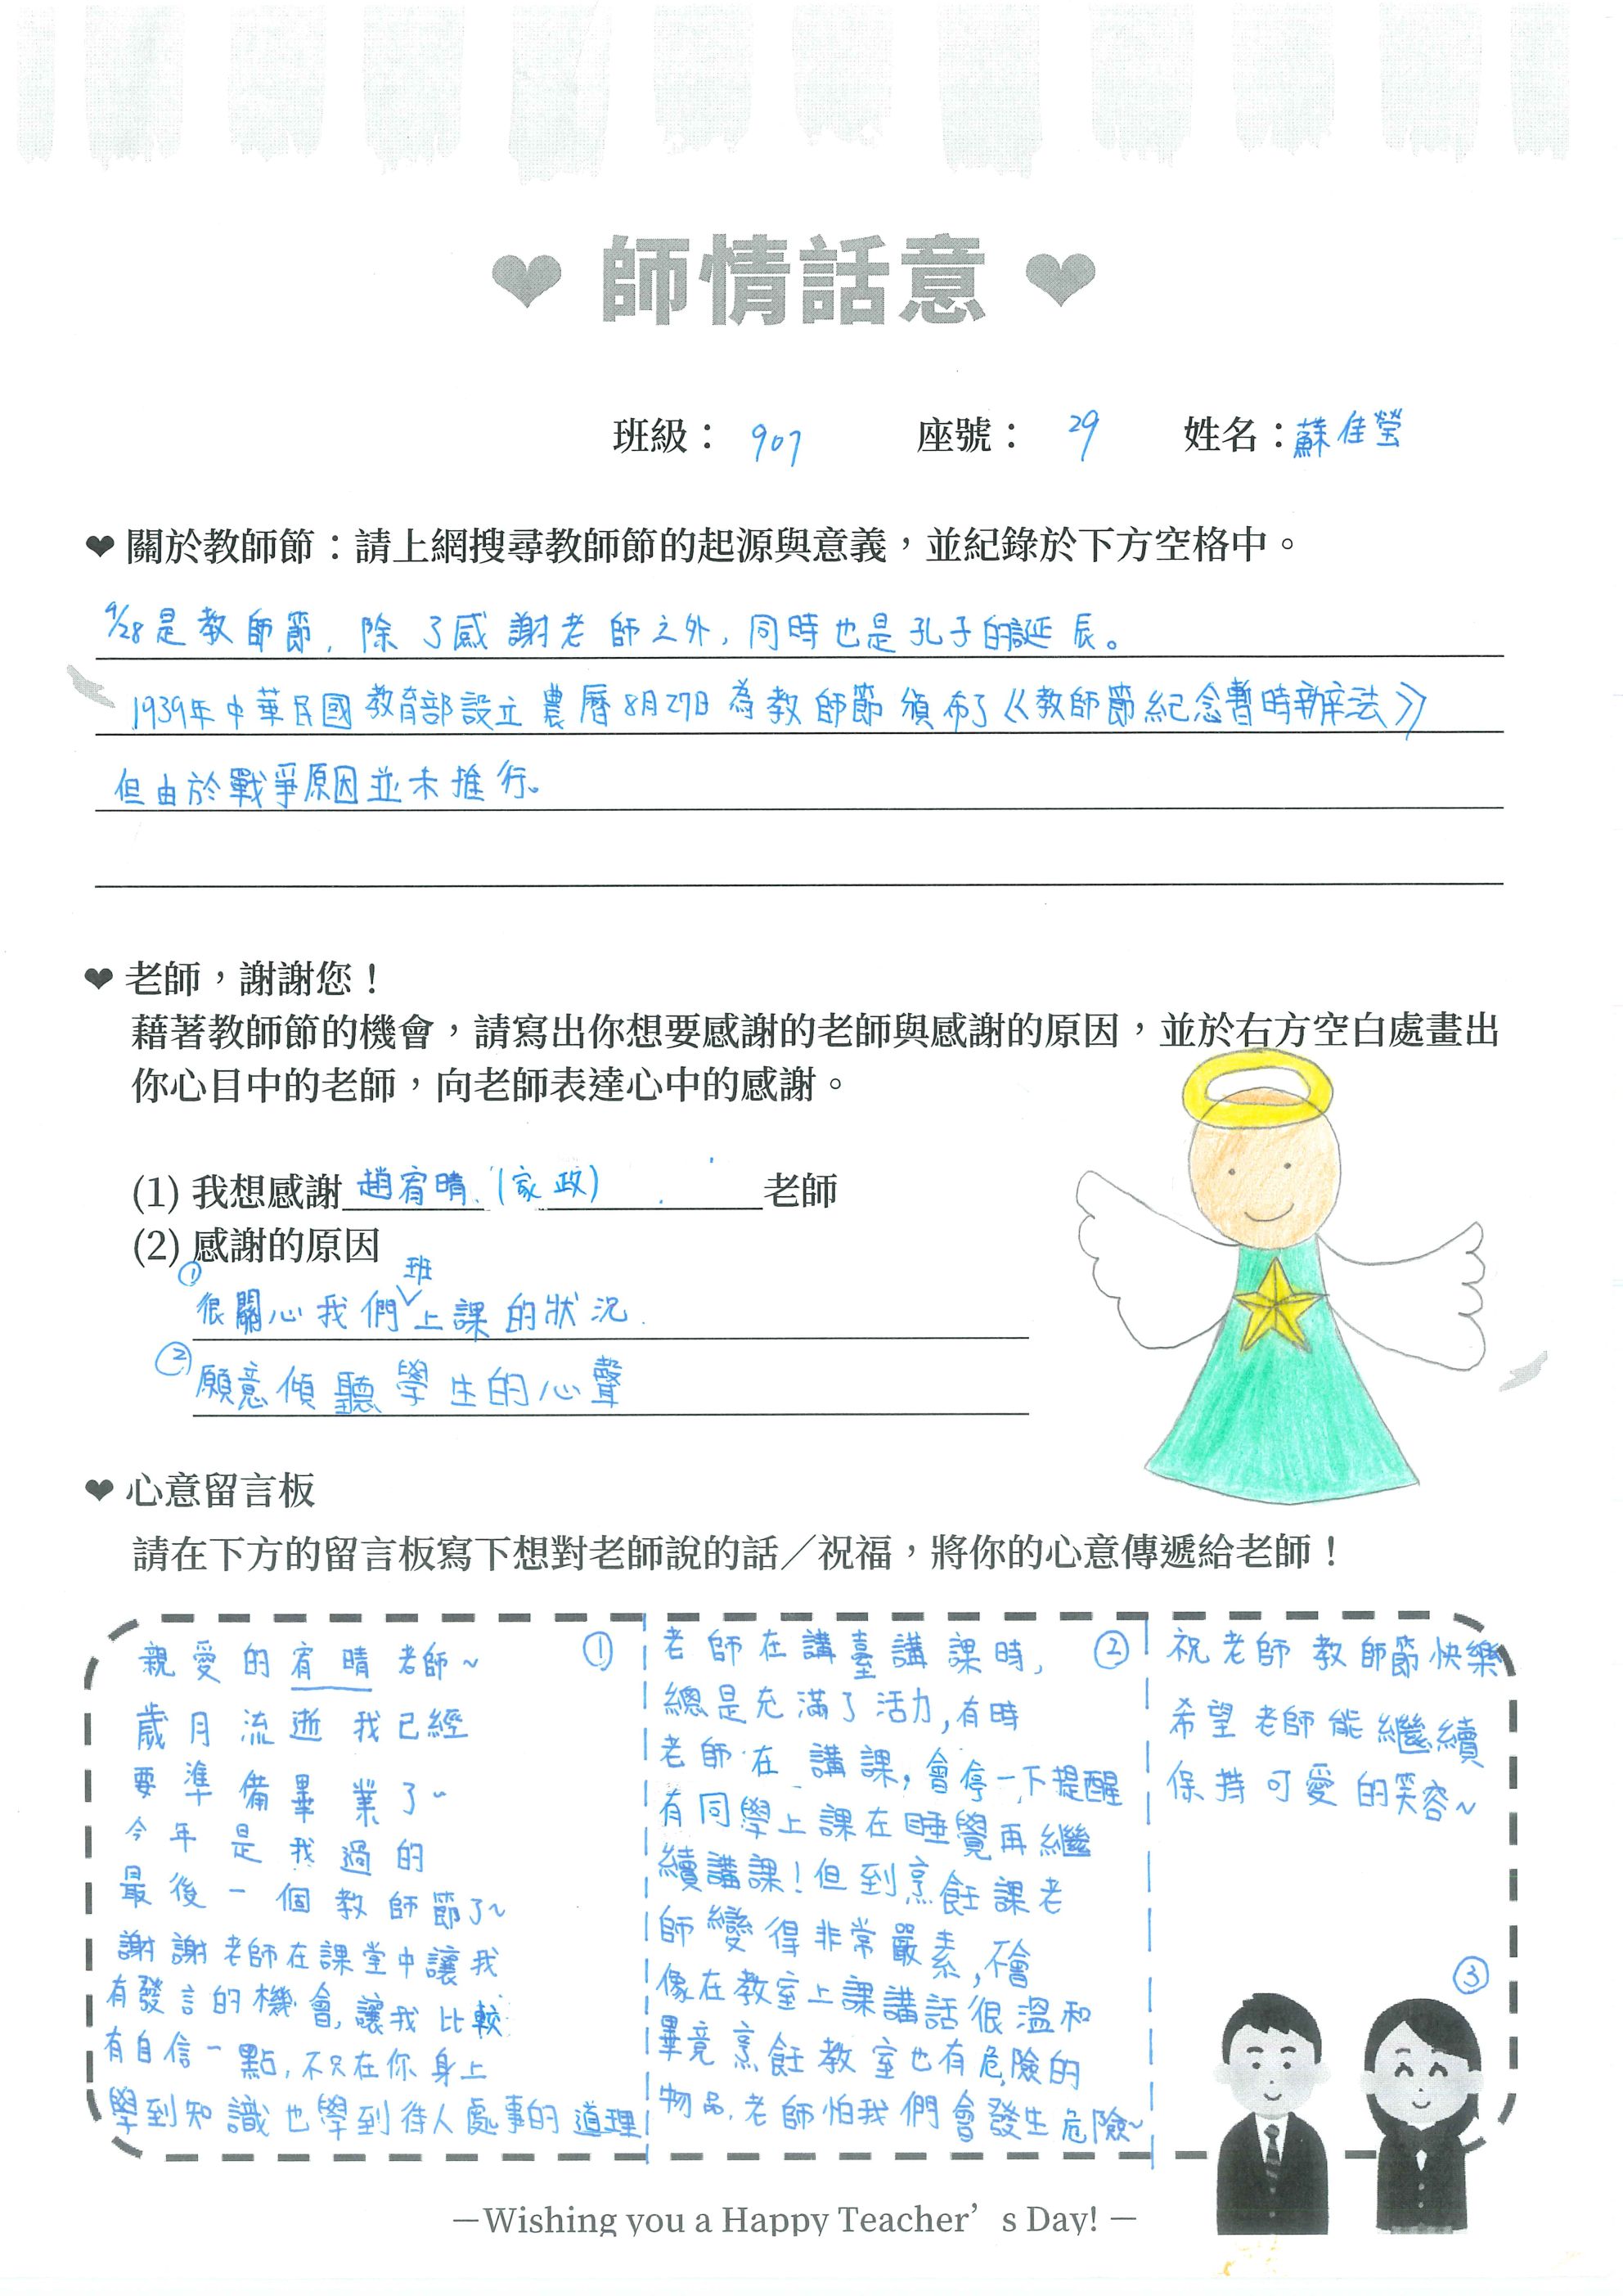 師情話意
班級： 907 座號： 29 姓名：蘇佳瑩
關於教師節：請上網搜尋教師節的起源與意義，並紀錄於下方空格中。
9/28是教師節，除了感謝老師之外，同時也是孔子的誕辰。
1939年中華民國教育部設立農曆8月27日為教師節頒布了《教師節紀念暫時辦法》
但由於戰爭原因並未推行。
老師，謝謝您！
藉著教師節的機會，請寫出你想要感謝的老師與感謝的原因，並於右方空白處畫出
你心目中的老師，向老師表達心中的感謝。
(1) 我想感謝 趙宥晴.(家政) 老師
(2) 感謝的原因
①很關心我們班上課的狀況.
②願意傾聽學生的心聲
心意留言板
請在下方的留言板寫下想對老師說的話／祝福，將你的心意傳遞給老師！
親愛的宥晴老師~ ①
歲月流逝我已經
要準備畢業了~
今年是我過的
最後一個教師節了~
謝謝老師在課堂中讓我
有發言的機會,讓我比較
有自信一點,不只在你身上
學到知識也學到待人處事的道理
老師在講臺講課時, ②
總是充滿了活力,有時
老師在講課,會停一下提醒
有同學上課在睡覺再繼
續講課!但到烹飪課老
師變得非常嚴素,不會
像在教室上課講話很溫和
畢竟烹飪教室也有危險的
物品,老師怕我們會發生危險~
祝老師教師節快樂
希望老師能繼續
保持可愛的笑容~
③
—Wishing you a Happy Teacher’s Day! —